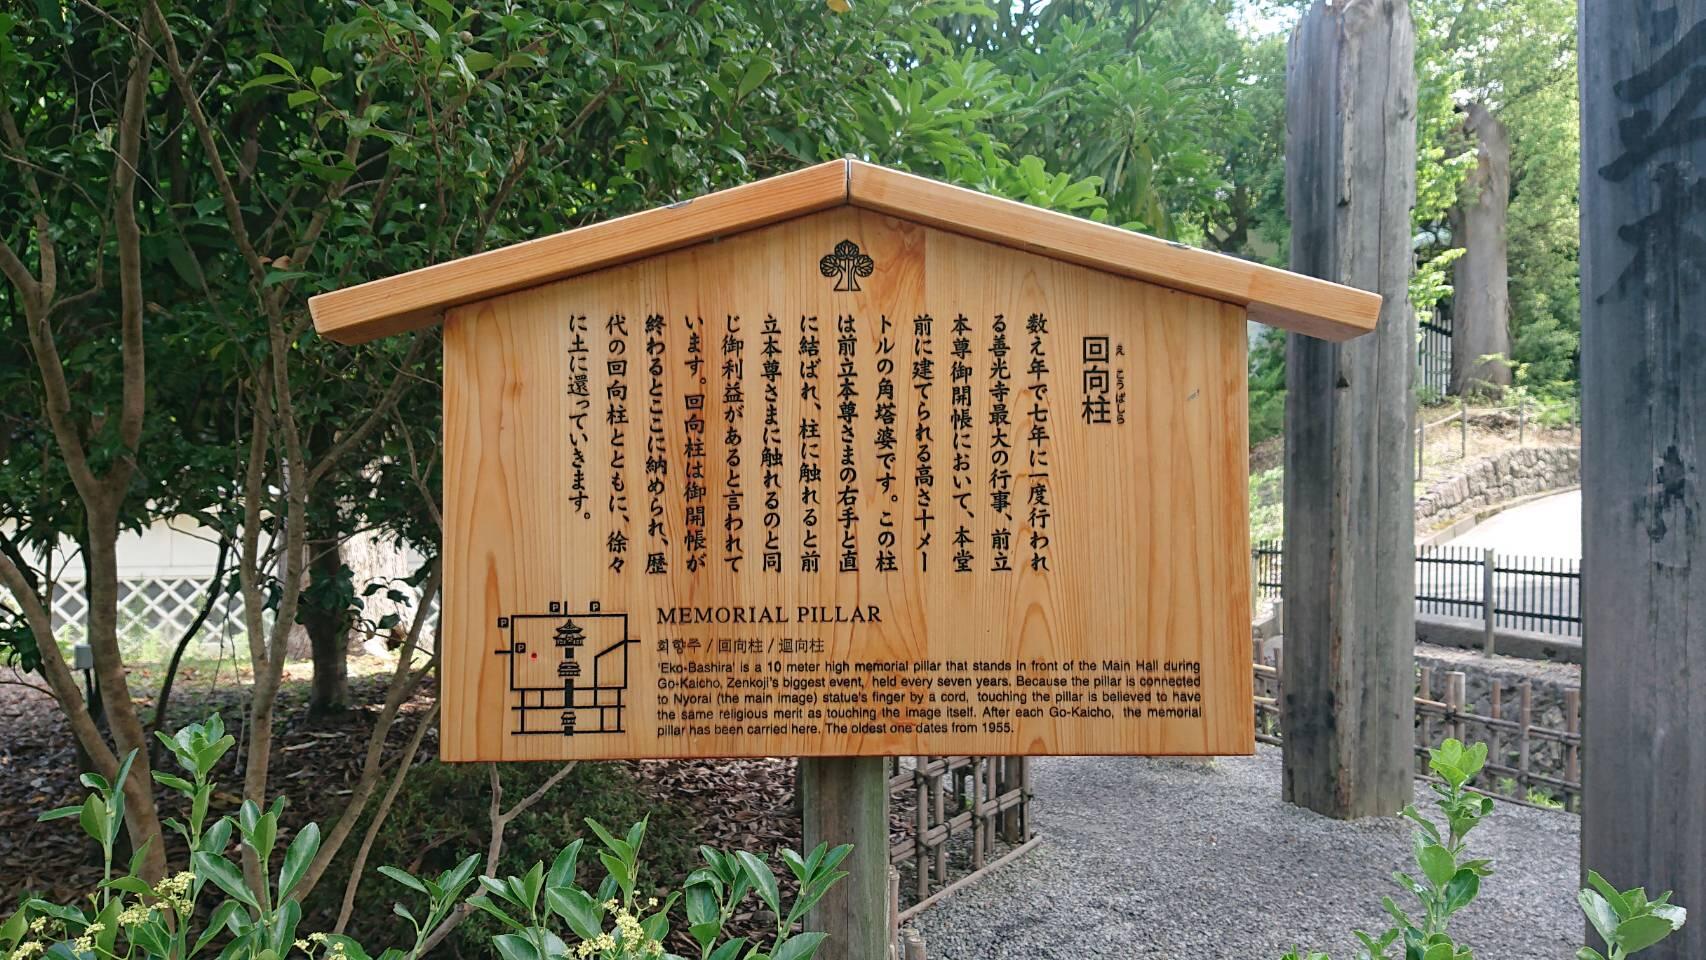 回向柱
え こうばしら
数え年で七年に一度行われ
る善光寺最大の行事、前立
本尊御開帳において、本堂
前に建てられる高さ十メー
トルの角塔婆です。この柱
は前立本尊さまの右手と直
に結ばれ、柱に触れると前
立本尊さまに触れるのと同
じ御利益があると言われて
います。回向柱は御開帳が
終わるとここに納められ、歴
代の回向柱とともに、徐々
に土に還っていきます。
P P
P
P
MEMORIAL PILLAR
회향주 / 回向柱 / 迴向柱
'Eko-Bashira' is a 10 meter high memorial pillar that stands in front of the Main Hall during
Go-Kaicho, Zenkoji's biggest event, held every seven years. Because the pillar is connected
to Nyorai (the main image) statue's finger by a cord, touching the pillar is believed to have
the same religious merit as touching the image itself. After each Go-Kaicho, the memorial
pillar has been carried here. The oldest one dates from 1955.